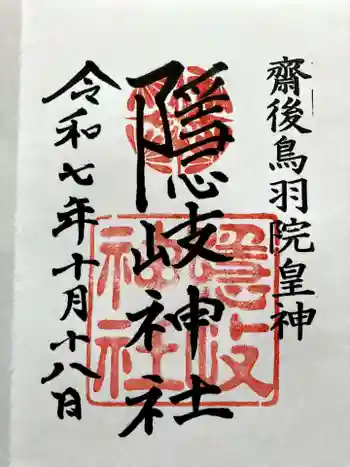 齋後鳥羽院皇神
隠岐神社
令和七年十月十八日
隠岐
神社